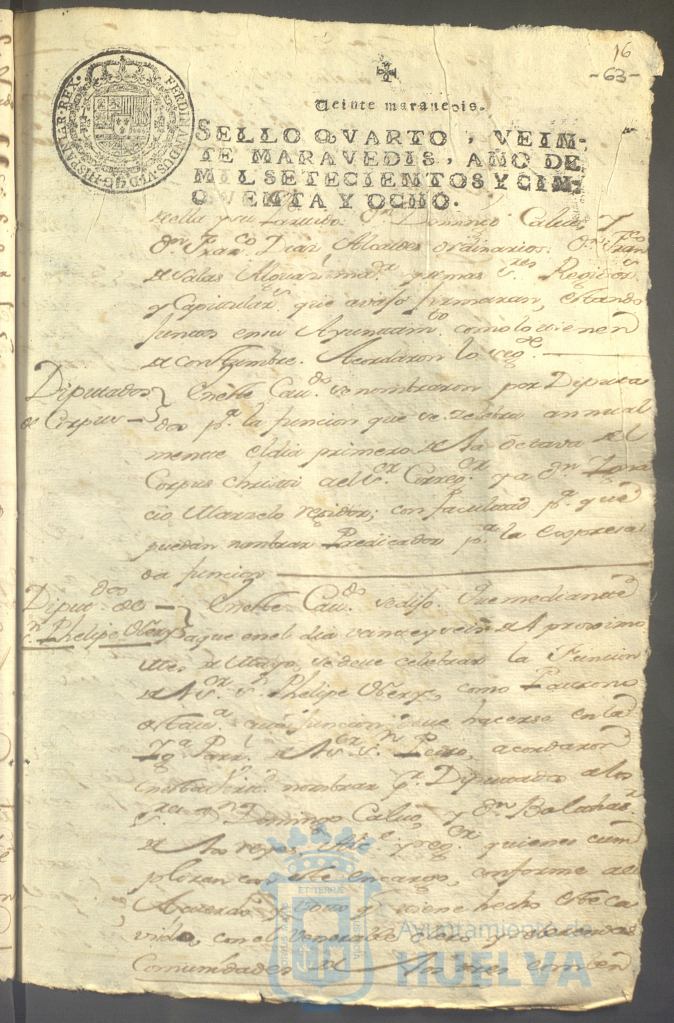 16
-63-
FERDINANDUS.VI.D.G.HISPANIAR.REX.
Veinte maravedis.
SELLO QVARTO, VEIN-
TE MARAVEDIS, AÑO DE
MIL SETECIENTOS Y CIN-
QVENTA Y OCHO.
de ella y su Partido Dn Domingo Calvo, y
Dn Franco Diaz, Alcaldes ordinarios. Dn Fran
de Salas y demas Sres Regidores
y Capitulares que avajo firmaran, estando
juntos en su Ayuntamto como lo tienen
de costumbre. Acordaron lo sige
Diputados
de Corpus
En este Cavdo se nombraron por Diputa
dos pa la funcion que se zelebra annual
mente el dia primero de la Octava del
Corpus Christi al Sr Corregr y a Dn Igna
cio Marzelo rexidor; con facultad pa que
puedan nombrar Predicador pa la Expresa
da funcion
Diputdos de
Sn Phelipe Nery
En este Cavdo se dijo. Que mediante
a que en el dia veinte y seis del proximo
mes de Mayo, se deve celebrar la Funcion
de Sn Phelipe Nery, como Patrono
funcion deve hacerse en la
Yga Parrl de Sr Sn Pedro, acordaron
nombrar pr Diputados a los
Sres Dn Domingo Calvo, y Dn Balthasr
de los reyes, quienes cum
pliran con este encargo, conforme al
Acuerdo y voto y tiene hecho este ca
vildo, con el venerable clero y
Comunidades de los tres comben
Ayuntamiento de
HUELVA